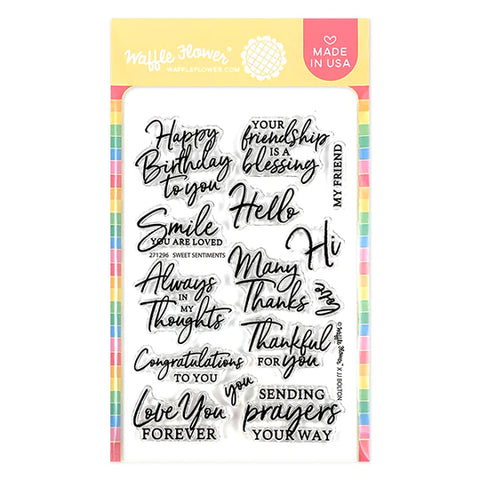 Waffle Flower®
WAFFLEFLOWER.COM
MADE
IN USA
Happy
Birthday
to you
YOUR
friendship
IS A
blessing
MY FRIEND
Smile
YOU ARE LOVED
Hello
Hi
271296 SWEET SENTIMENTS
Always
IN
MY
Thoughts
Many
Thanks
love
Thankful
FOR you
Congratulations
TO YOU
you
Love You
FOREVER
SENDING
prayers
YOUR WAY
© Waffle Flower X JJ BOLTON